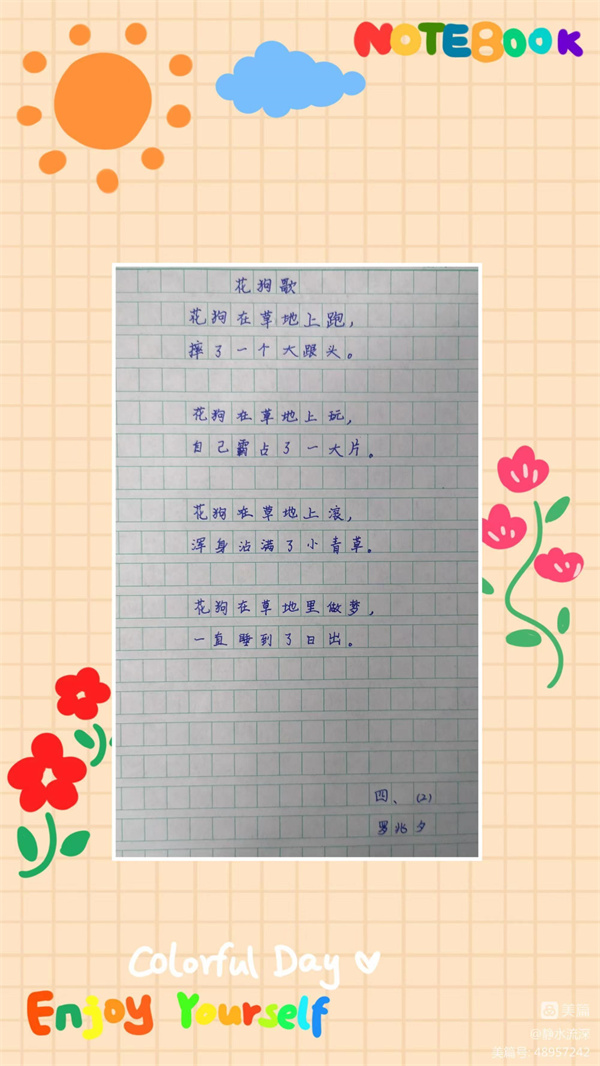 NOTEBOOK
花狗歌
花狗在草地上跑，
摔了一个大跟头。
花狗在草地上玩，
自己霸占了一大片。
花狗在草地上滚，
浑身沾满了小青草。
花狗在草地里做梦，
一直睡到了日出。
四、(2)
罗兆夕
Colorful Day
Enjoy Yourself
美篇
@静水流深
美篇号 48957242